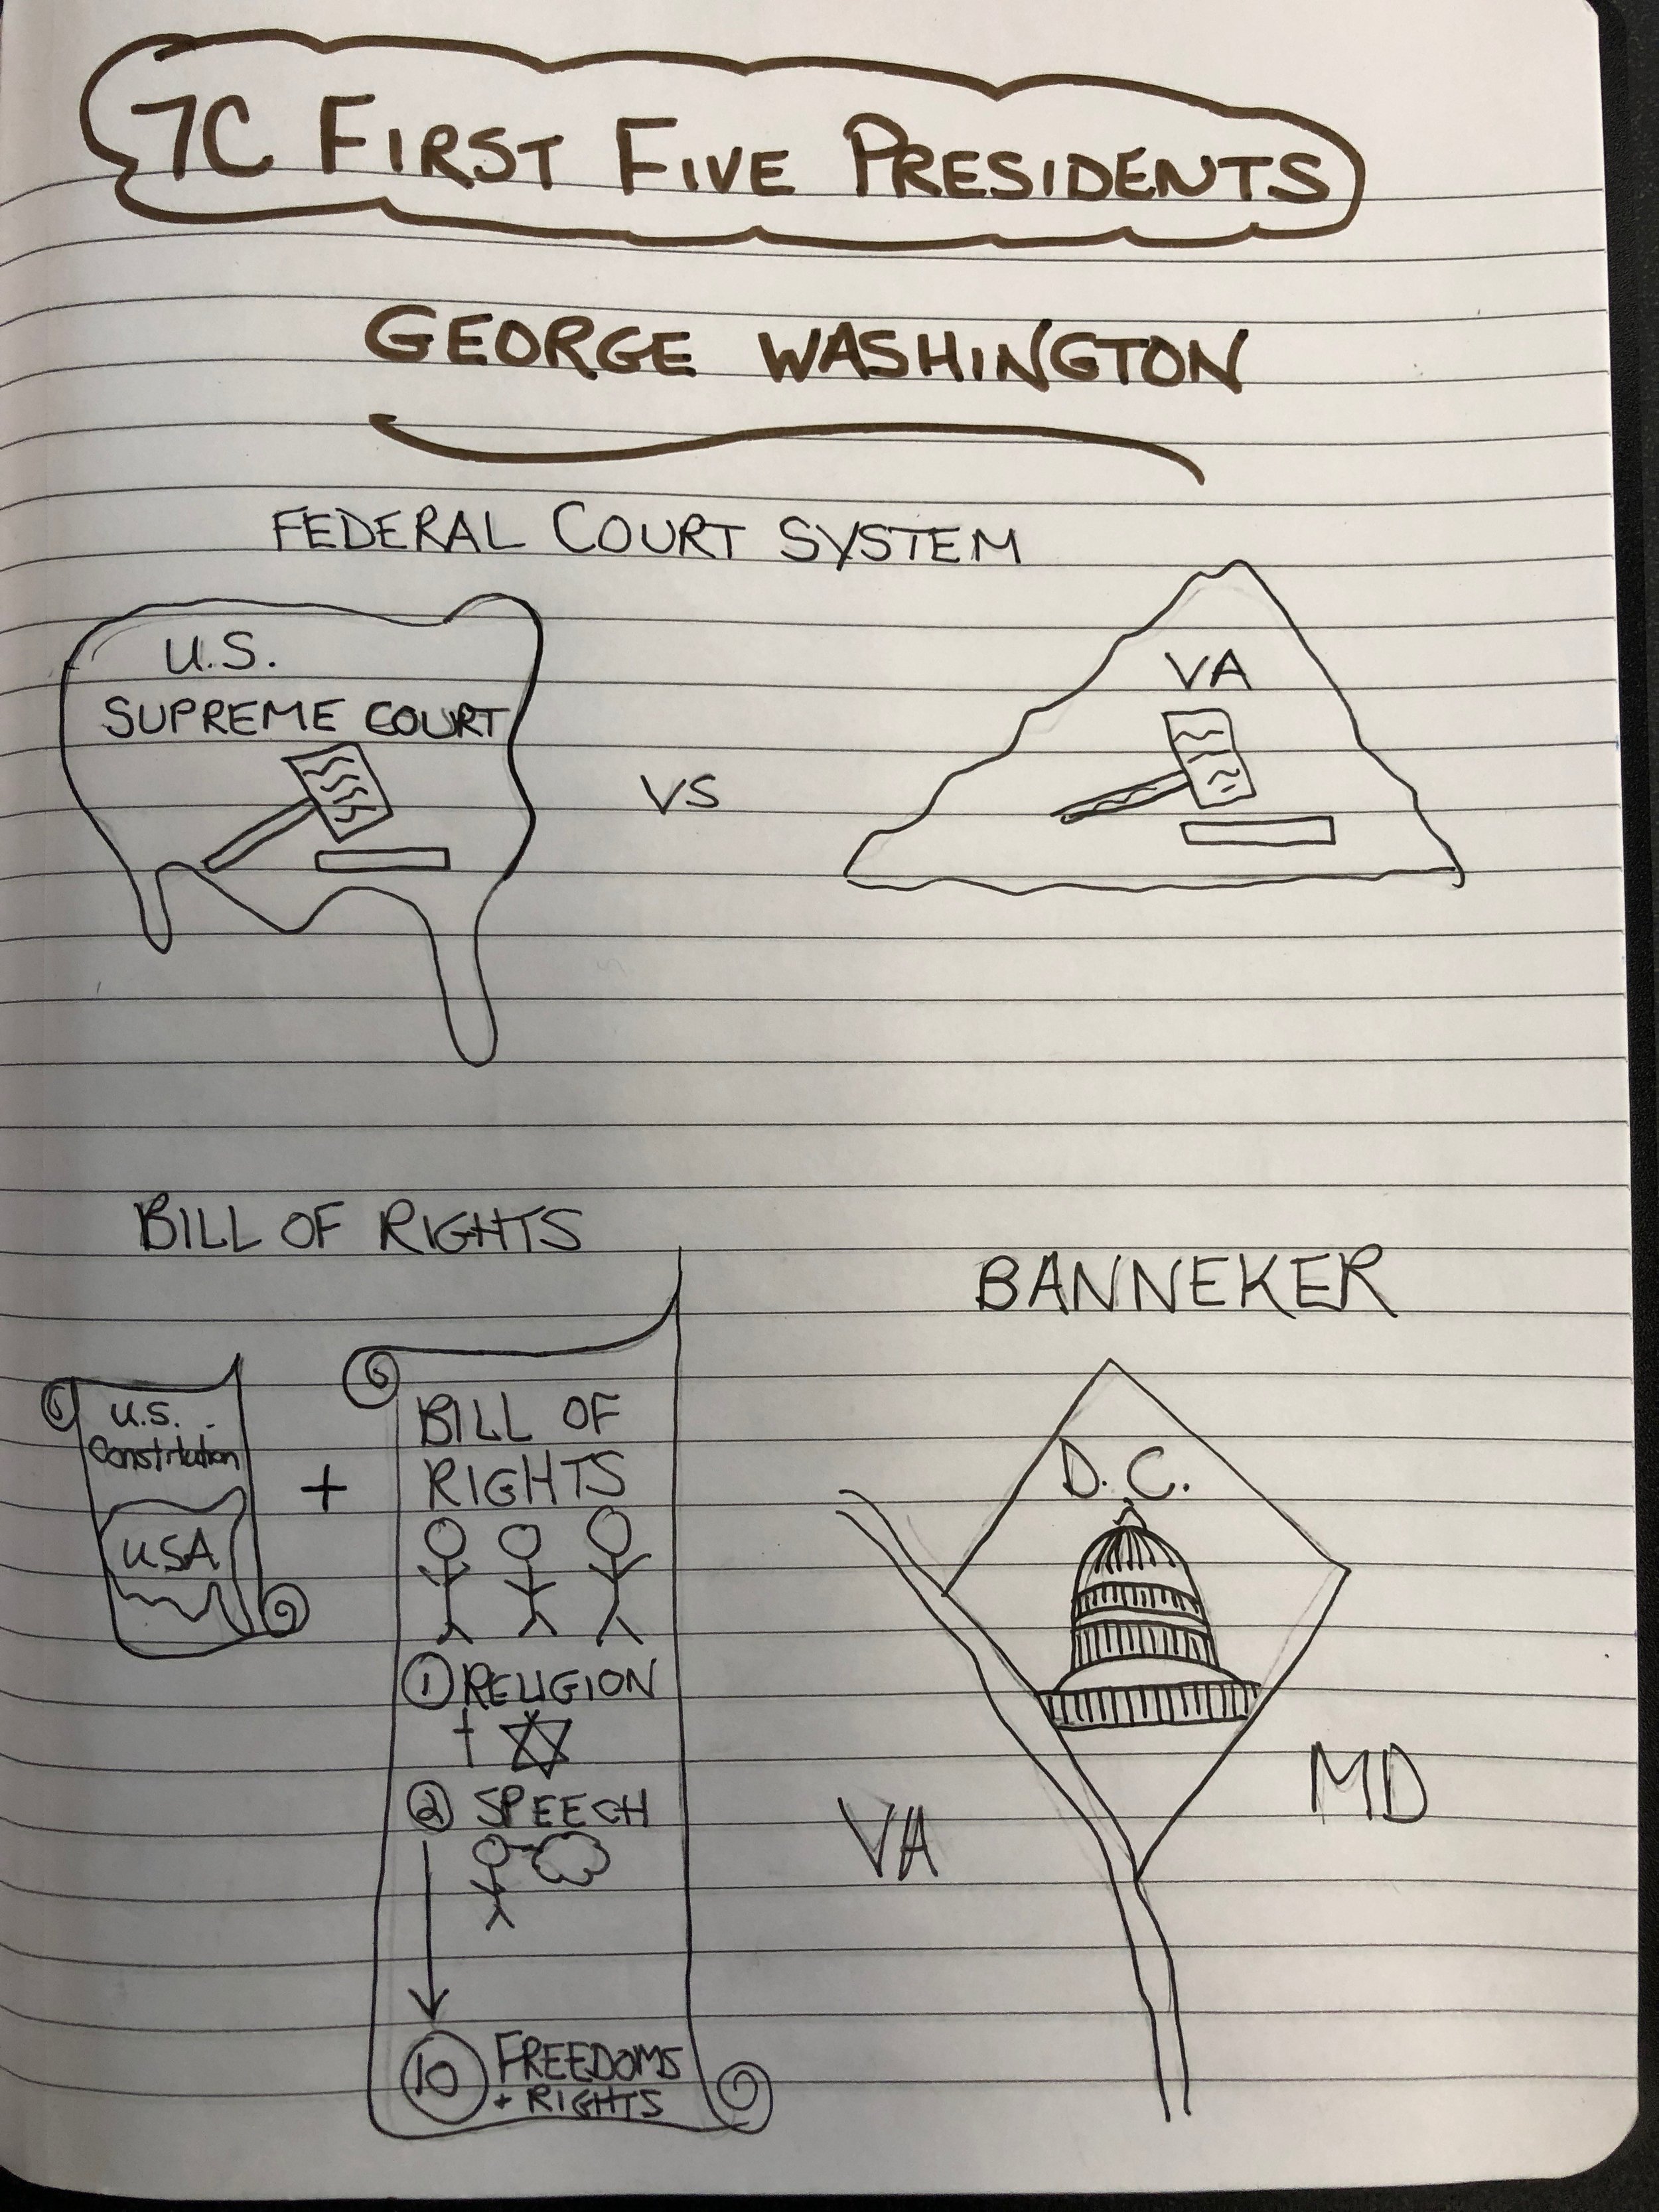 7C FIRST FIVE PRESIDENTS
GEORGE WASHINGTON
FEDERAL COURT SYSTEM
U.S.
SUPREME COURT
VS
VA
BILL OF RIGHTS
U.S.
Constitution
USA
+
BILL OF
RIGHTS
① RELIGION
② SPEECH
⑩ FREEDOMS
+ RIGHTS
BANNEKER
D.C.
VA
MD